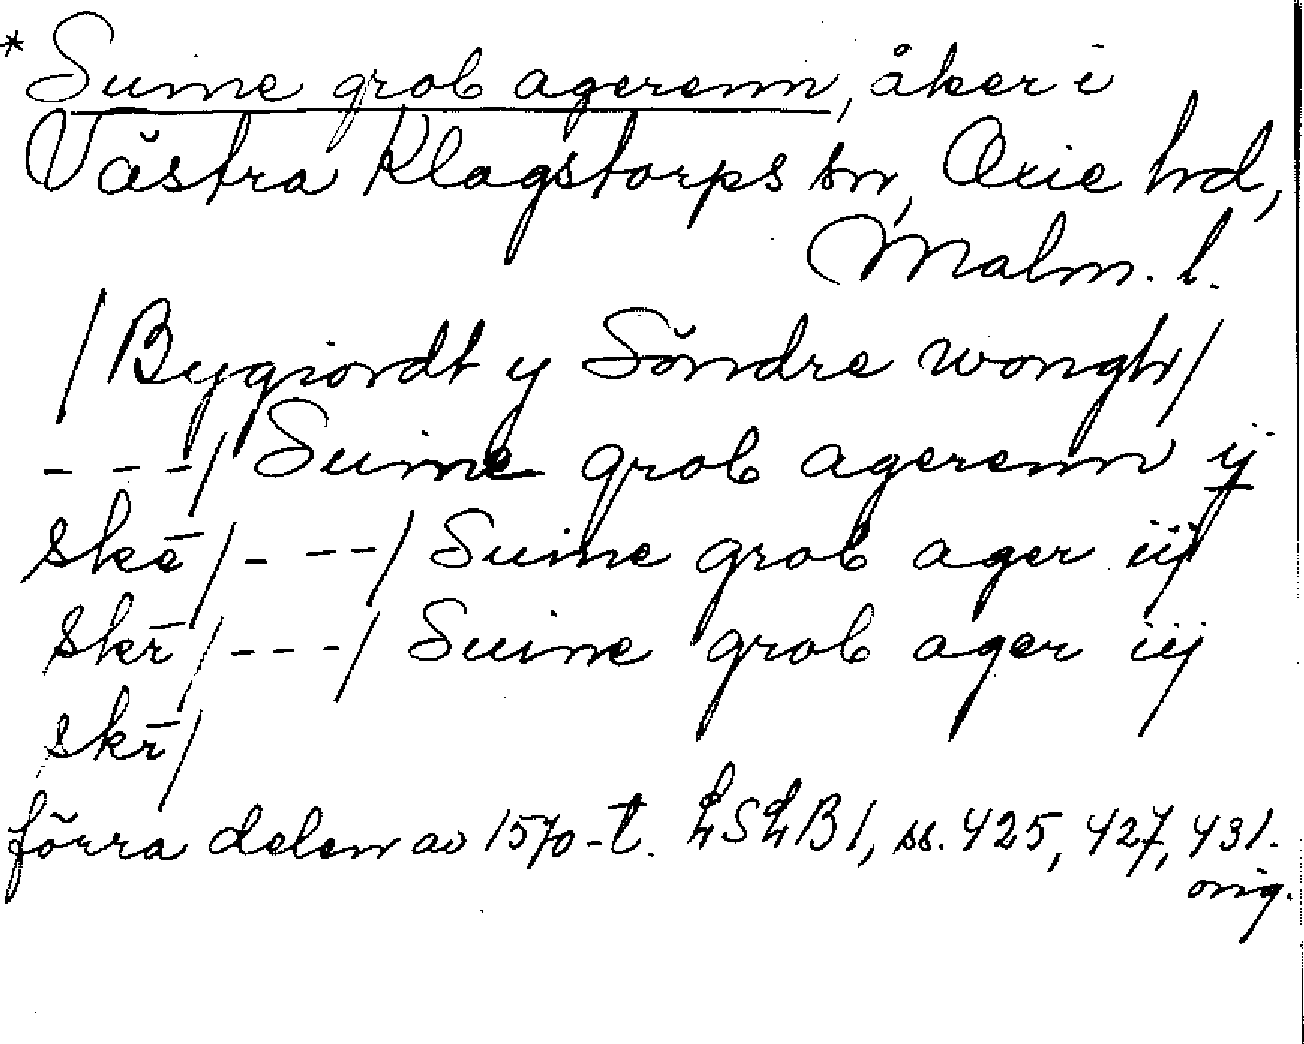 * Suine grob agerenn, åker i
Västra Klagstorps sn, Oxie hd,
Malm. l.
/Bygiordt y Söndre wongh/
- - -/ Suine grob agerenn ij
skē/- - -/ Suine grob ager iij
skr̄/- - -/ Suine grob ager iij
skr̄/
förra delen av 1570-t. LSLB1, ss. 425, 427, 431.
orig.